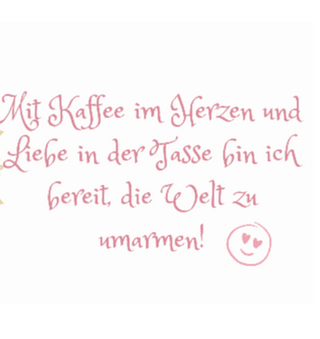 Mit Kaffee im Herzen und
Liebe in der Tasse bin ich
bereit, die Welt zu
umarmen!